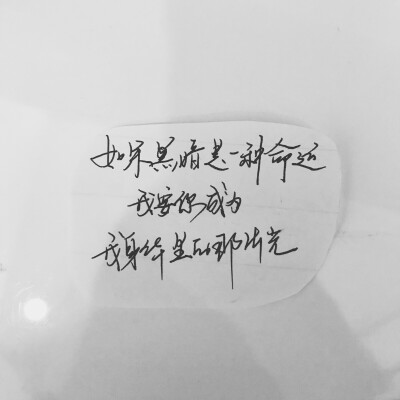 如果黑暗是一种命运
我要你成为
我身体里的那片光